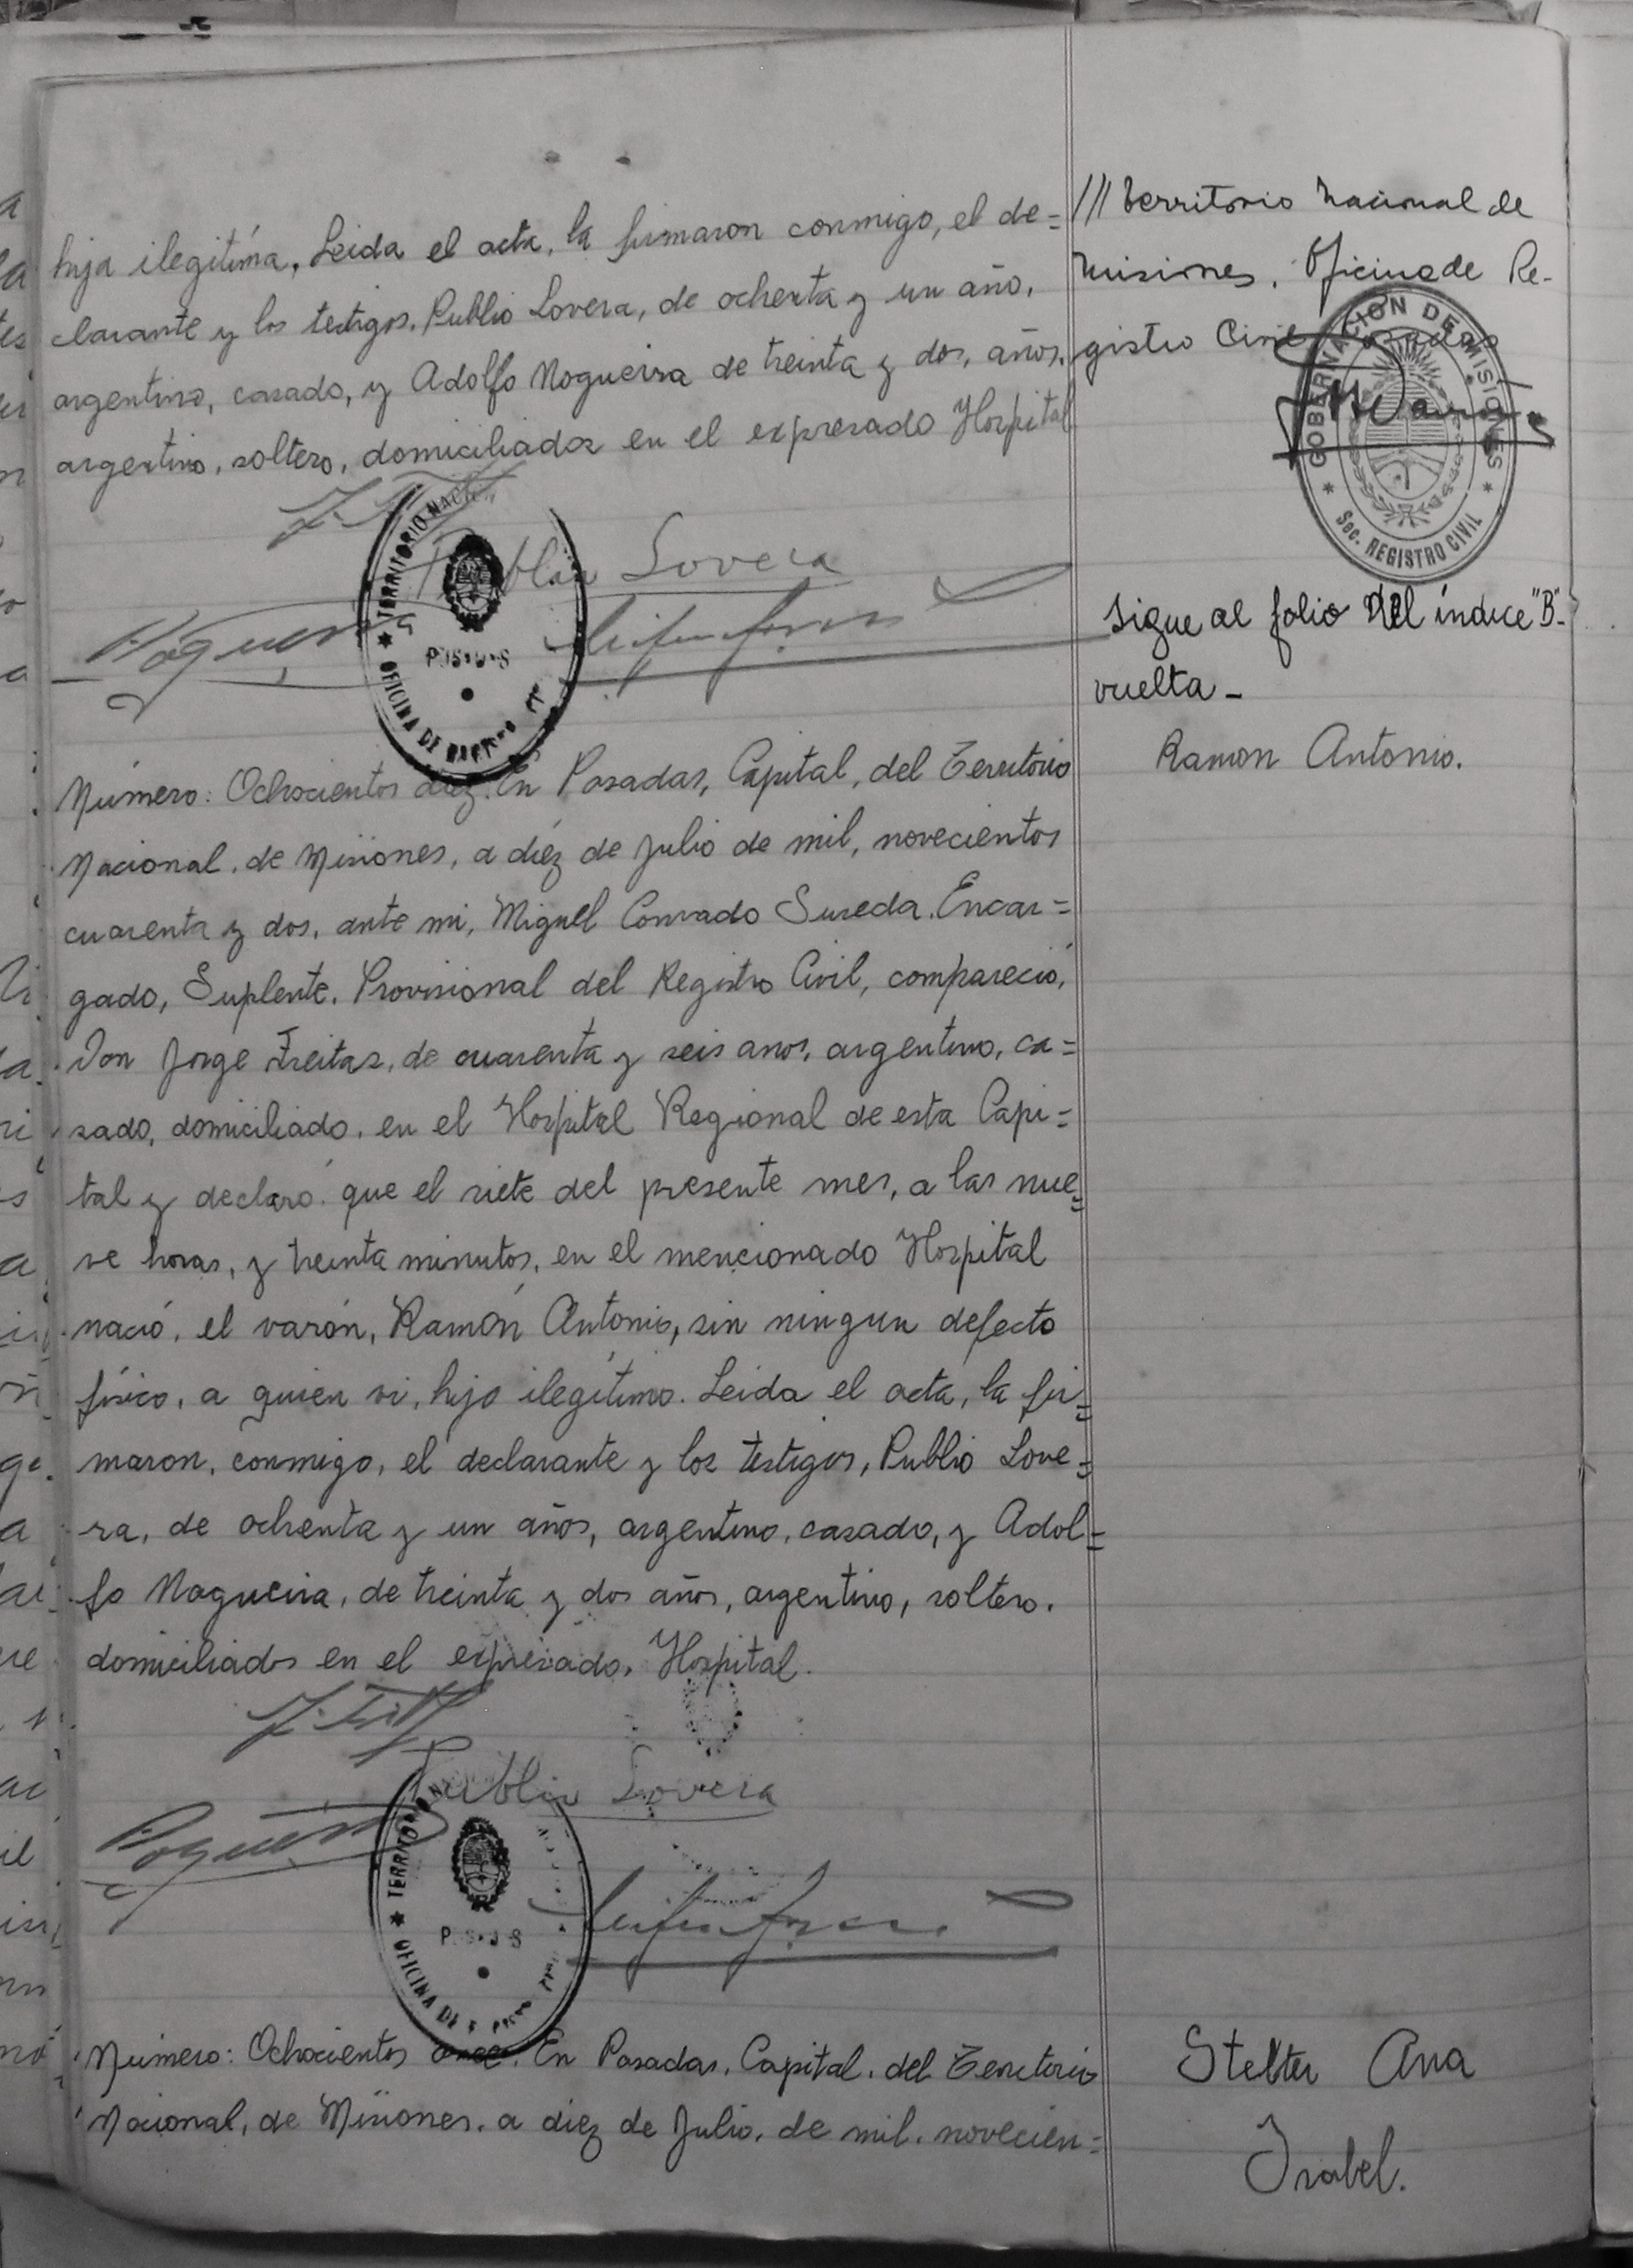 hija ilegitíma. Leida el acta, la firmaron conmigo, el de=
clarante y los testigos. Publio Lovera, de ochenta y un año.
argentino, casado, y Adolfo Nogueira de treinta y dos, años.
argentino, soltero, domiciliados en el expresado Hospital
Publio Lovera
Nogueira
TERRITORIO NACIONAL
OFICINA DE
Número: Ochocientos diez. En Posadas, Capital, del Territorio
Nacional, de Misiones, a diéz de Julio de mil, novecientos
cuarenta y dos, ante mi, Miguel Conrado Sureda. Encar=
gado, Suplente. Provisional del Registro Civil, compareció,
Don Jorge Freitas, de cuarenta y seis anos, argentino, ca=
sado, domiciliado, en el Hospital Regional de esta Capi=
tal y declaró: que el siete del presente mes, a las nue=
ve horas, y treinta minutos, en el mencionado Hospital
nació, el varón, Ramón Antonio, sin ningun defecto
físico, a quien vi, hijo ilegítimo. Leida el acta, la fir=
maron, conmigo, el declarante y los testigos, Publio Love=
ra, de ochenta y un años, argentino, casado, y Adol=
fo Nogueira, de treinta y dos años, argentino, soltero.
domiciliados en el expresado, Hospital.
Publio Lovera
Nogueira
TERRITORIO
OFICINA DE
Número: Ochocientos once. En Posadas. Capital. del Territorio
Nacional, de Misiones. a diez de Julio. de mil. novecien=
/// Territorio Nacional de
Misiones. Oficina de Re-
gistro Civil Posadas
GOBERNACION DE MISIONES
Sec. REGISTRO CIVIL
Sigue al folio del índice "B"-
vuelta-
Ramon Antonio.
Stelter Ana
Isabel.